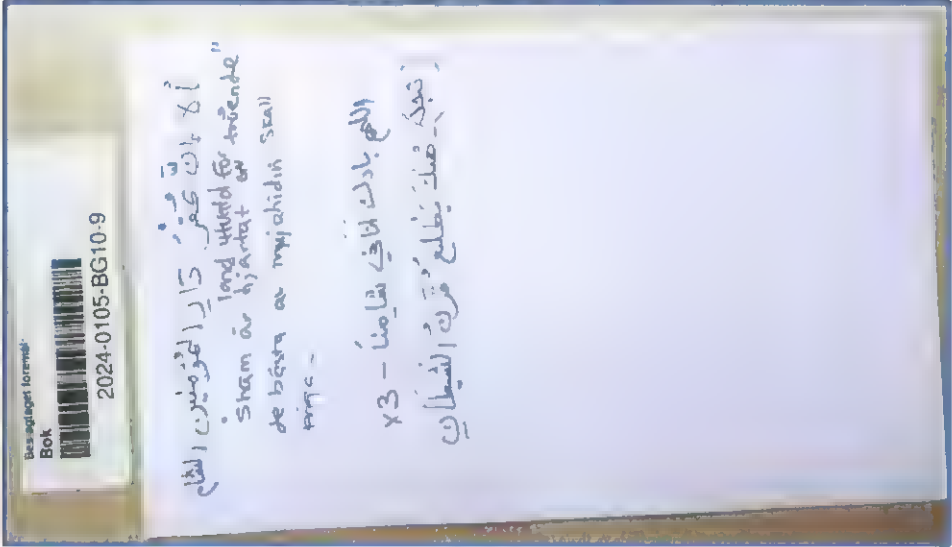 Beslagtaget föremål:
Bok
2024-0105-BG10-9
ألا إن عقر دار المؤمنين الشام
"Sham är land utvald för troende"
hjärtat av
de bästa av mujahidin skall
اللهم بارك لنا في شامنا - x3
نجد هناك يطلع قرن الشيطان